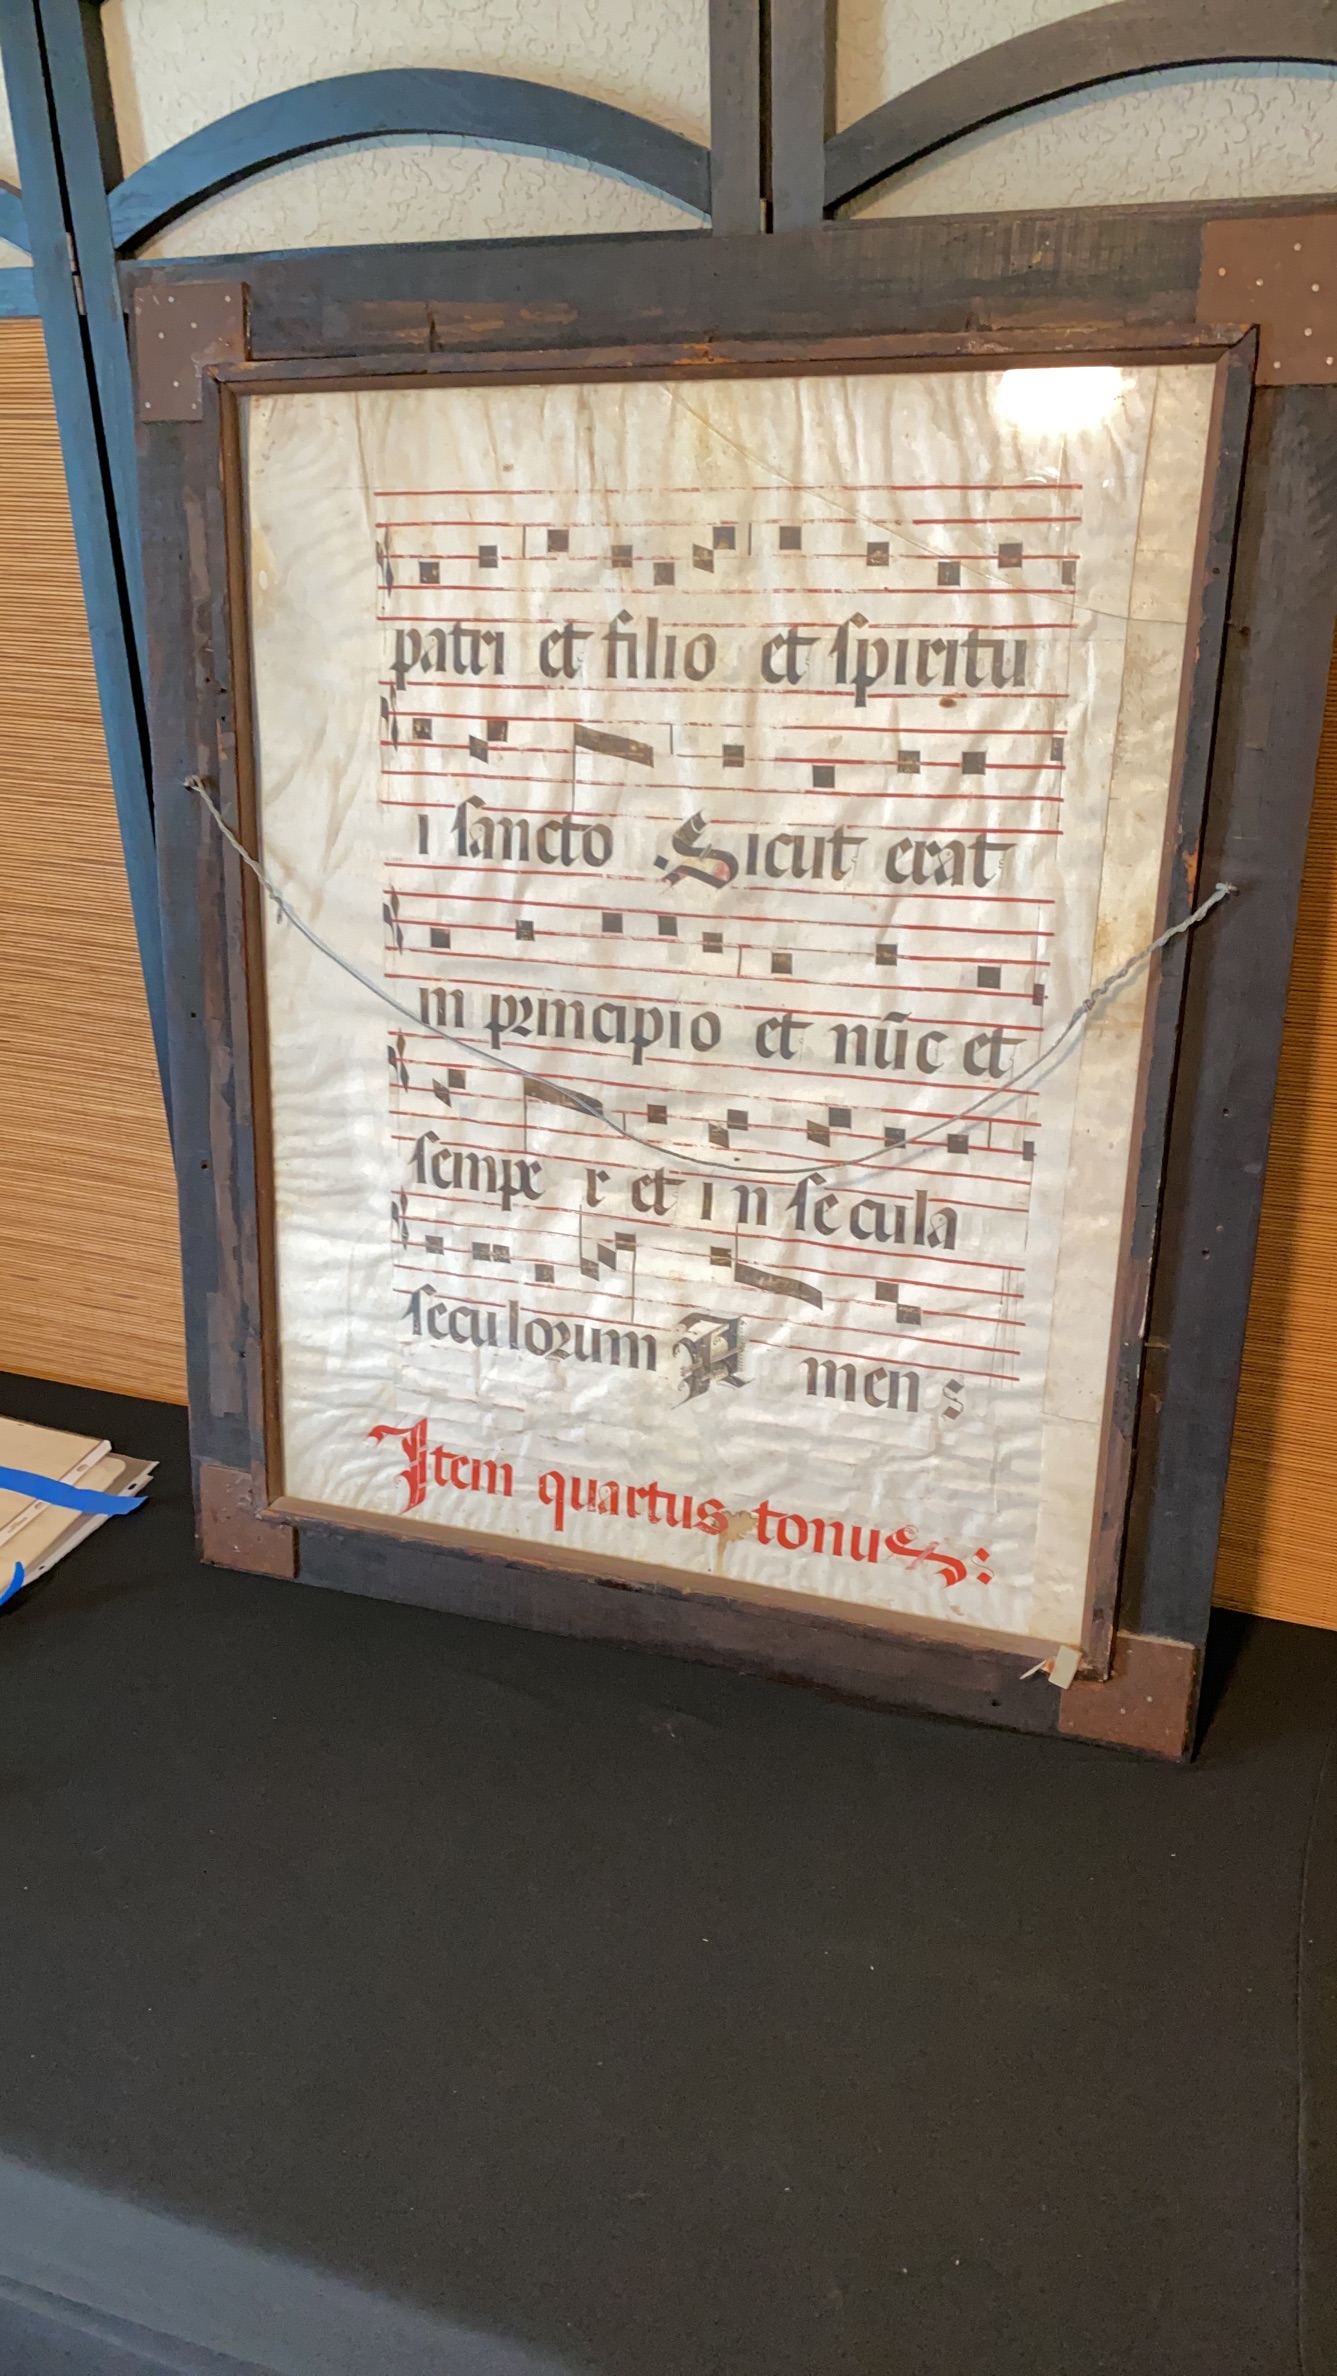 patri et filio et ſpiritu
i ſancto . Sicut erat
in principio et nūc et
ſempe r et i n ſe cula
ſeculorum A men s
Item quartus tonus: